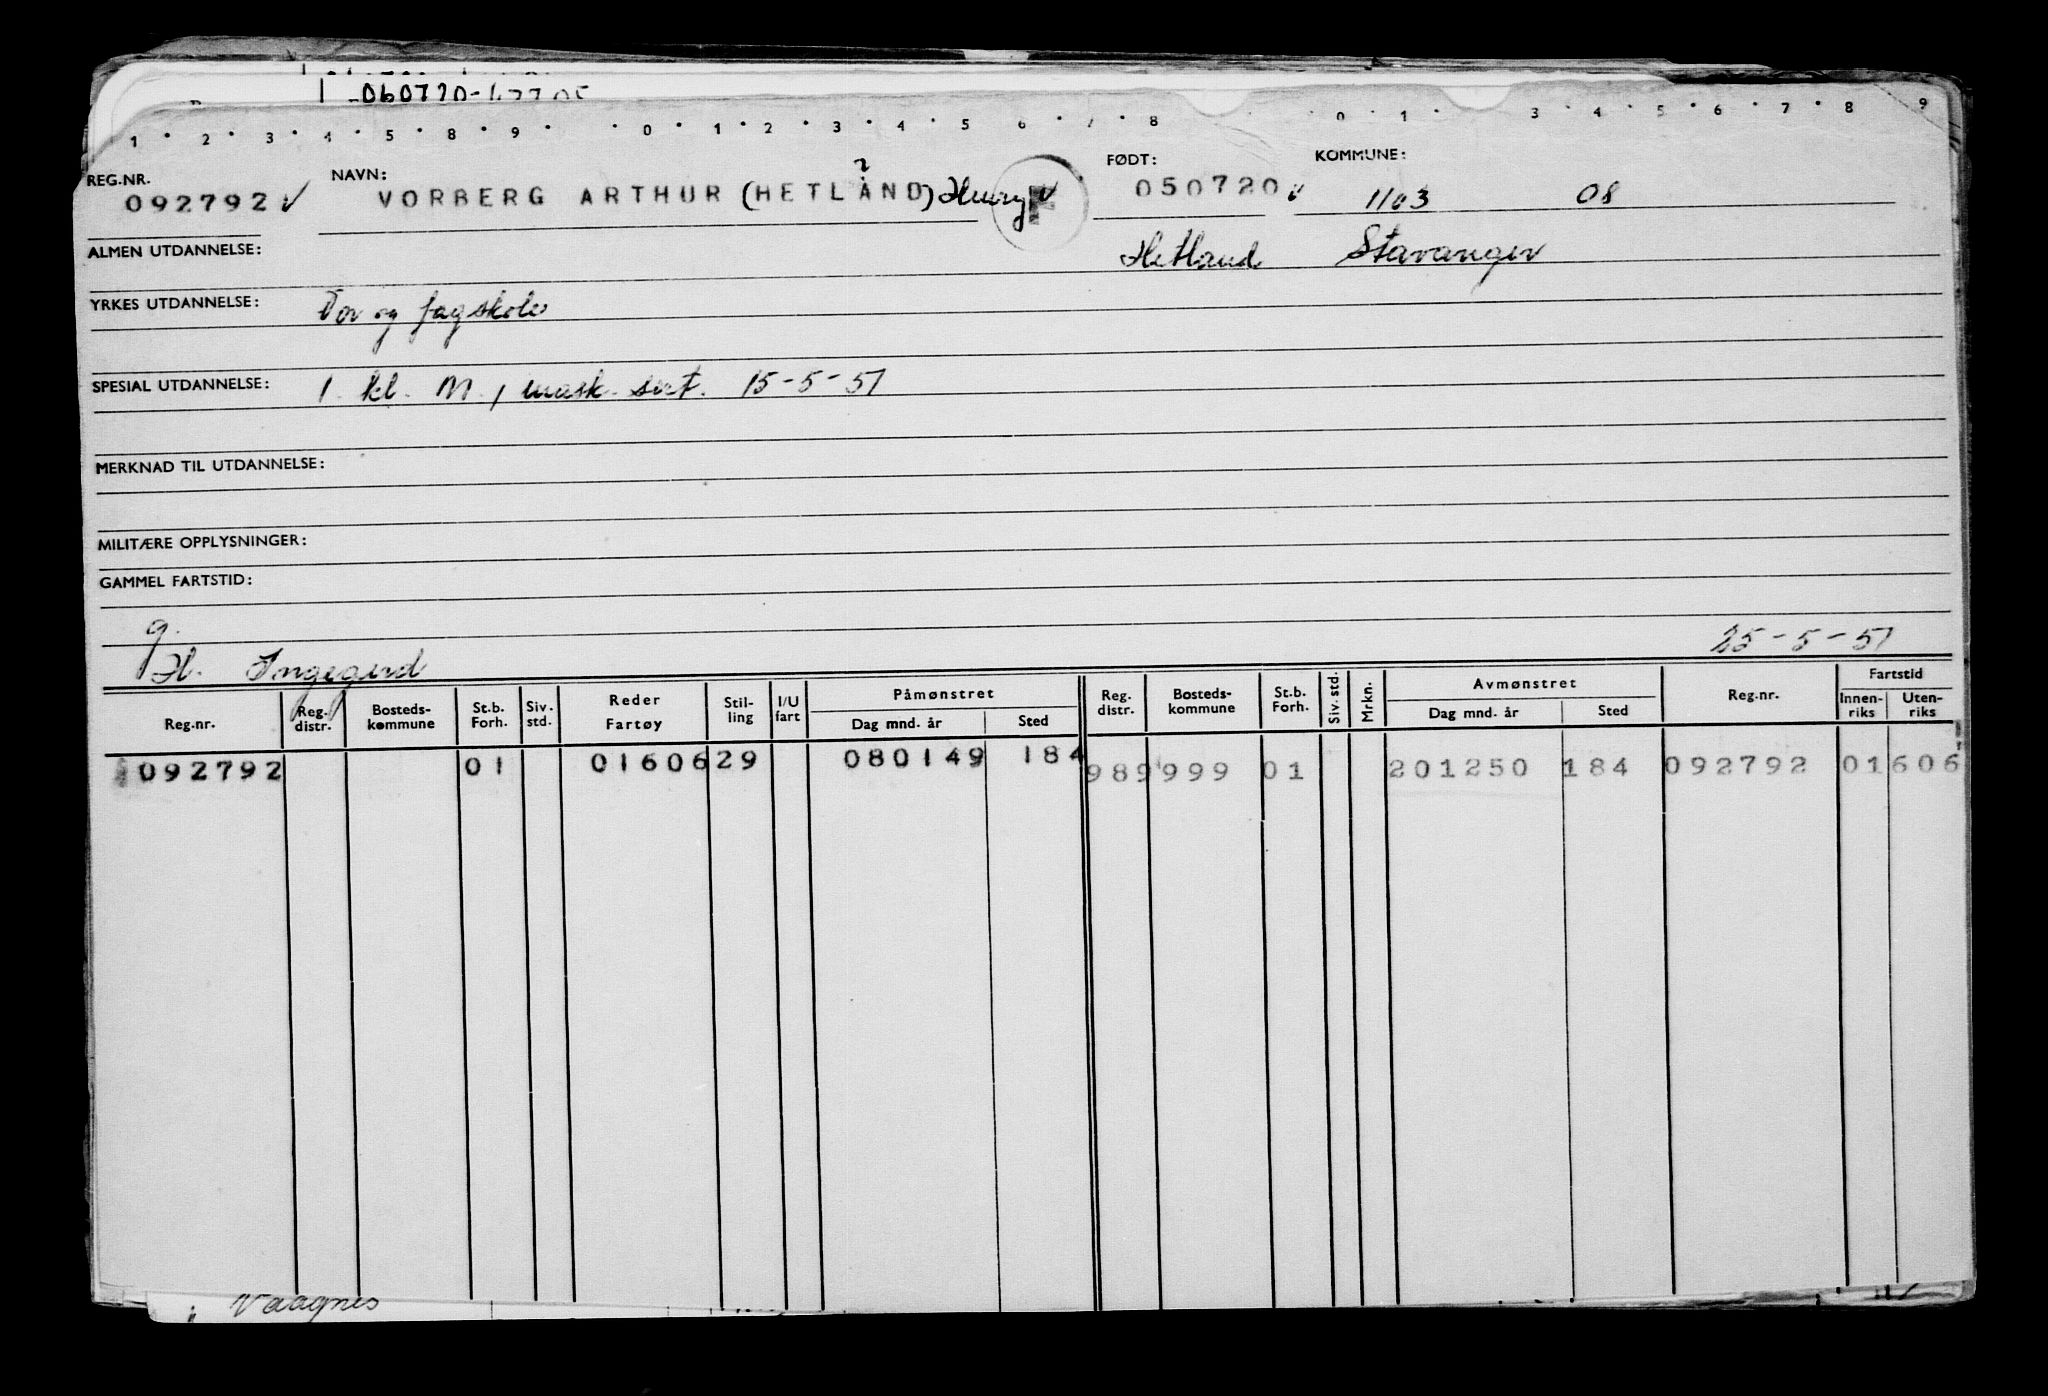 060720-
1 2 3 4 5 8 9 0 1 2 3 4 5 6 7 8 0 1 3 4 5 6 7 8 9
REG.NR. NAVN: FØDT: KOMMUNE:
092792 VORBERG ARTHUR (HETLAND) Henry F 050720 1103 08
ALMEN UTDANNELSE: Hetland Stavanger
YRKES UTDANNELSE: For og fagskole
SPESIAL UTDANNELSE: 1. kl. M., mask. sert. 15-5-51
MERKNAD TIL UTDANNELSE:
MILITÆRE OPPLYSNINGER:
GAMMEL FARTSTID:
g.
H. Ingegerd 25-5-51
Reg.nr. Reg. distr. Bosteds-kommune St.b. Forh. Siv. std. Reder Fartøy Stil-ling I/U fart Påmønstret Dag mnd. år Sted Reg. distr. Bosteds-kommune St.b. Forh. Siv. std. Mrkn. Avmønstret Dag mnd. år Sted Reg.nr. Fartstid Innen-riks Uten-riks
092792 01 0160629 080149 184 989 999 01 201250 184 092792 01606
Vaagnes